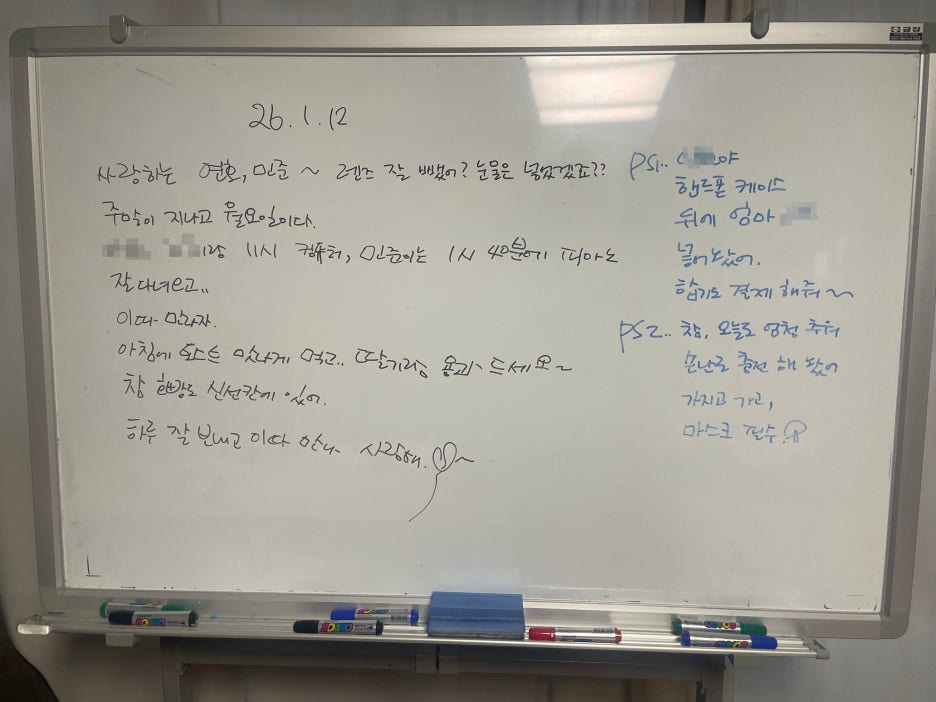 26.1.12
사랑하는 연호, 민준~ 렌즈 잘 뺐어? 눈물은 넣었겠죠??
주말이 지나고 월요일이다.
이랑 11시 컴퓨터, 민준이는 1시 40분에 피아노
잘 다녀오고..
이따 만나자.
아침에 토스트 맛나게 먹고.. 딸기랑 용과 드세요~
참 한강도 신선칸에 있어.
하루 잘 보내고 이따 만나 사랑해.~
PS1.. 야
핸드폰 케이스
뒤에 엄마
넣어놨어.
합기도 결제 해줘~
PS2.. 참, 오늘도 엄청 추워
손난로 충전 해 놨어
가지고 가고,
마스크 필수.